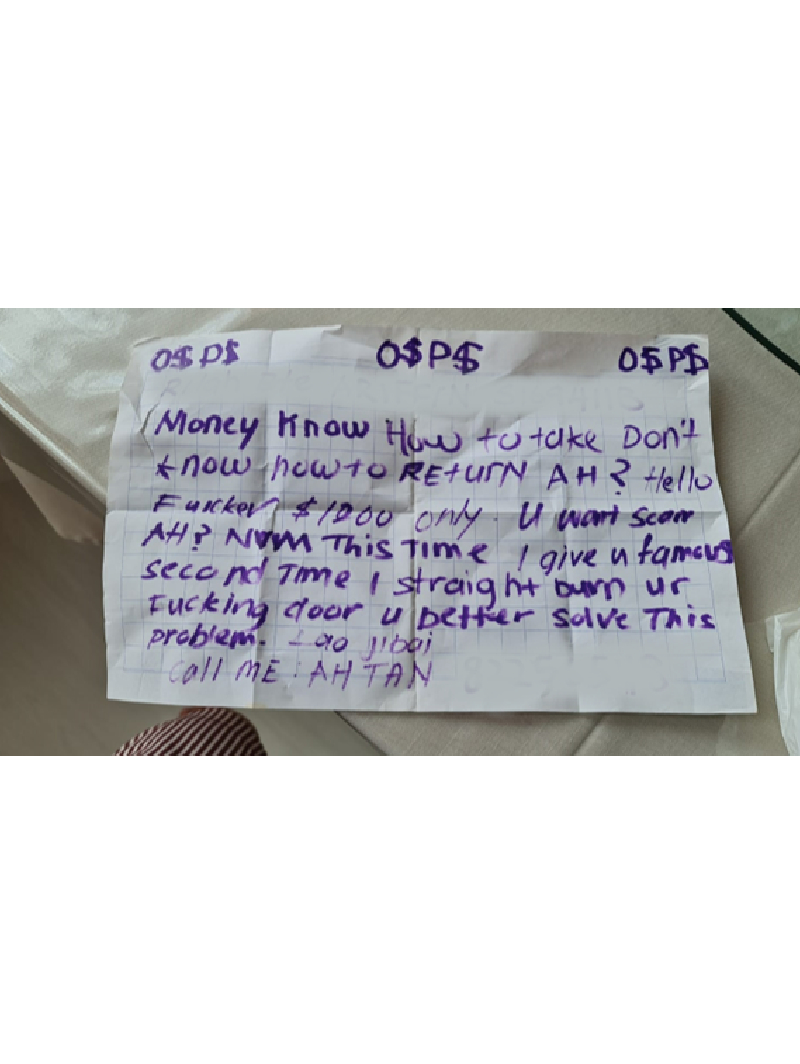 O$P$ O$P$ O$P$
Money Know How to take Don't
know how to RETURN AH? Hello
Fucker $1000 only. U want scam
AH? NVM This TIME I give u famous
second Time I straight burn ur
Fucking door u better solve This
problem. Lao jibai
Call ME: AH TAN